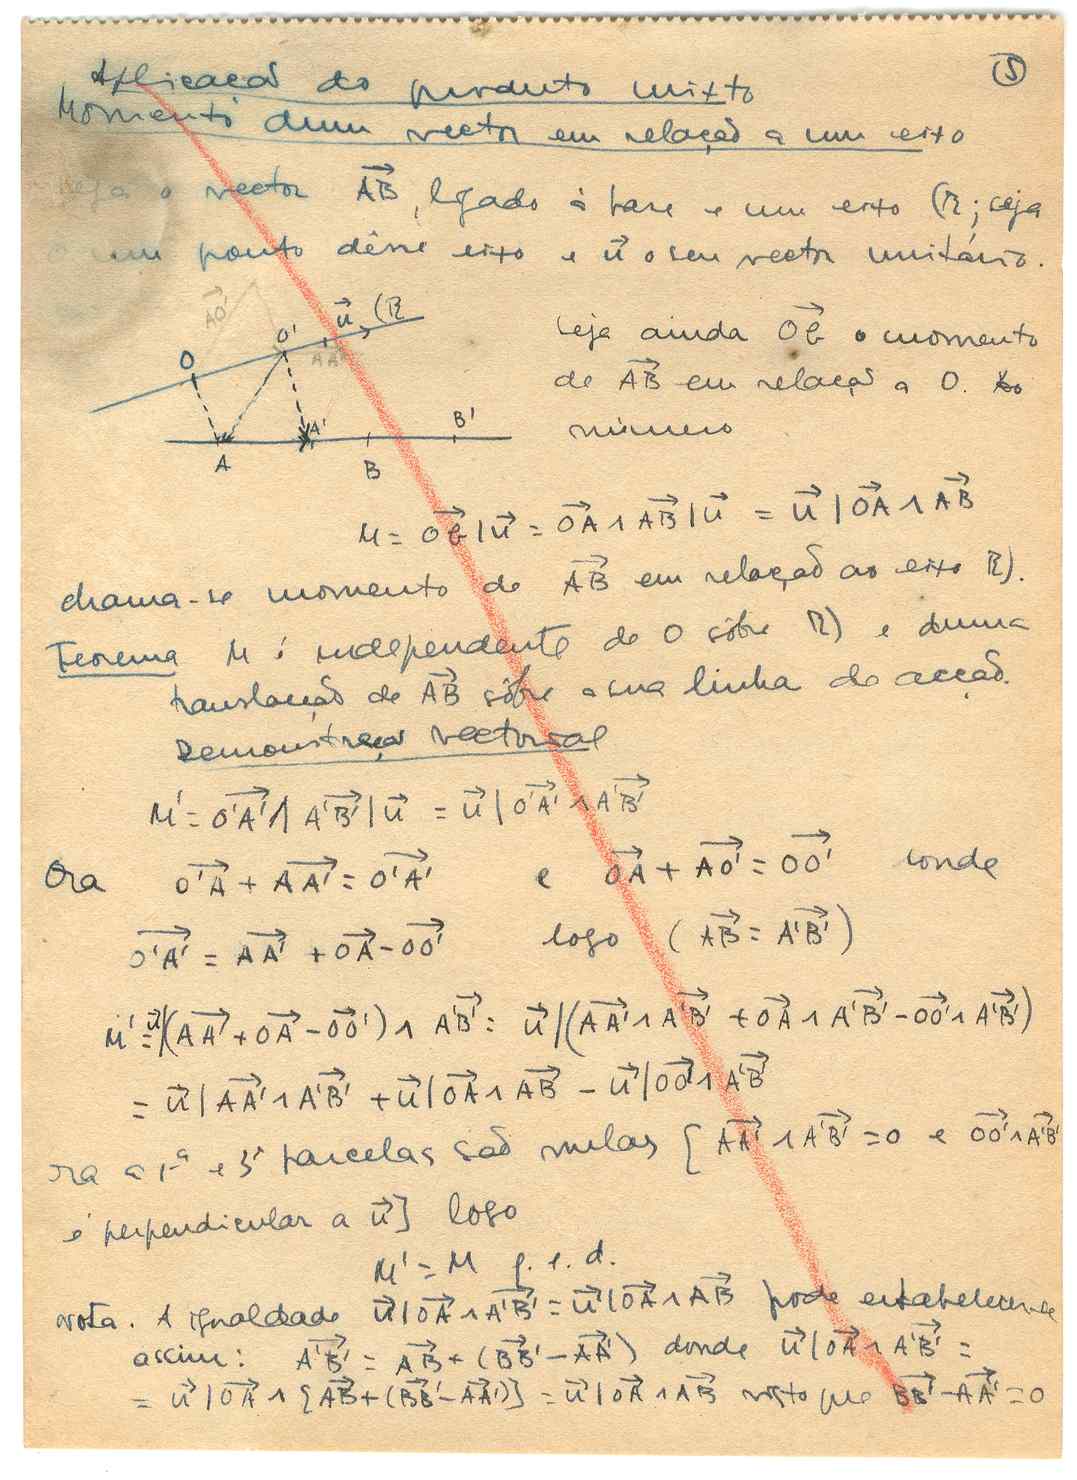 Aplicação do produto mixto
(5)
Momento dum vector em relação a um eixo
Seja o vector AB⃗, ligado à base e um eixo (R; seja
O um ponto dêsse eixo e u⃗ o seu vector unitário.
AO'⃗
O O' u⃗ (R
AA'
A A' B B'
Seja ainda OG⃗ o momento
de AB⃗ em relação a O. Ao
número
M = OG⃗ | u⃗ = OA⃗ ∧ AB⃗ | u⃗ = u⃗ | OA⃗ ∧ AB⃗
chama-se momento de AB⃗ em relação ao eixo R).
Teorema M é independente de O sôbre R) e duma
translação de AB⃗ sôbre a sua linha de acção.
Demonstração vectorial
M' = O'A'⃗ ∧ A'B'⃗ | u⃗ = u⃗ | O'A'⃗ ∧ A'B'⃗
Ora O'A⃗ + AA'⃗ = O'A'⃗ e OA⃗ + AO'⃗ = OO'⃗ donde
O'A'⃗ = AA'⃗ + OA⃗ - OO'⃗ logo (AB⃗ = A'B'⃗)
M' = u⃗ | (AA'⃗ + OA⃗ - OO'⃗) ∧ A'B'⃗ = u⃗ | (AA'⃗ ∧ A'B'⃗ + OA⃗ ∧ A'B'⃗ - OO'⃗ ∧ A'B'⃗)
= u⃗ | AA'⃗ ∧ A'B'⃗ + u⃗ | OA⃗ ∧ AB⃗ - u⃗ | OO'⃗ ∧ A'B'⃗
ora a 1ª e 3ª parcelas são nulas [AA'⃗ ∧ A'B'⃗ = 0 e OO'⃗ ∧ A'B'⃗
é perpendicular a u⃗] logo
M' = M q. e. d.
Nota. A igualdade u⃗ | OA⃗ ∧ A'B'⃗ = u⃗ | OA⃗ ∧ AB⃗ pode estabelecer-se
assim: A'B'⃗ = AB⃗ + (BB'⃗ - AA'⃗) donde u⃗ | OA⃗ ∧ A'B'⃗ =
= u⃗ | OA⃗ ∧ {AB⃗ + (BB'⃗ - AA'⃗)} = u⃗ | OA⃗ ∧ AB⃗ visto que BB'⃗ - AA'⃗ = 0